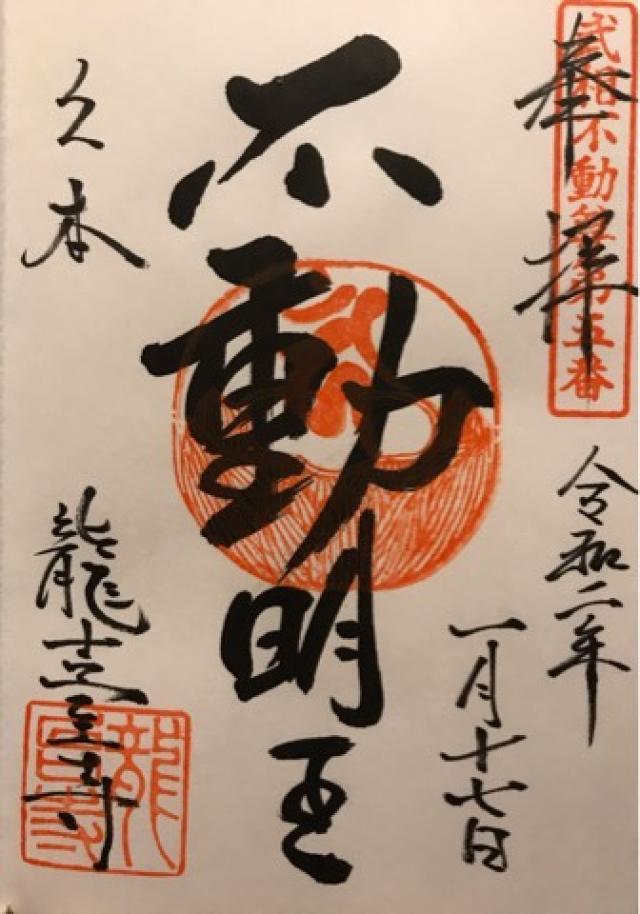 奉拝
武相不動尊第五番
令和二年
一月十七日
不動明王
久本
龍臺寺
龍